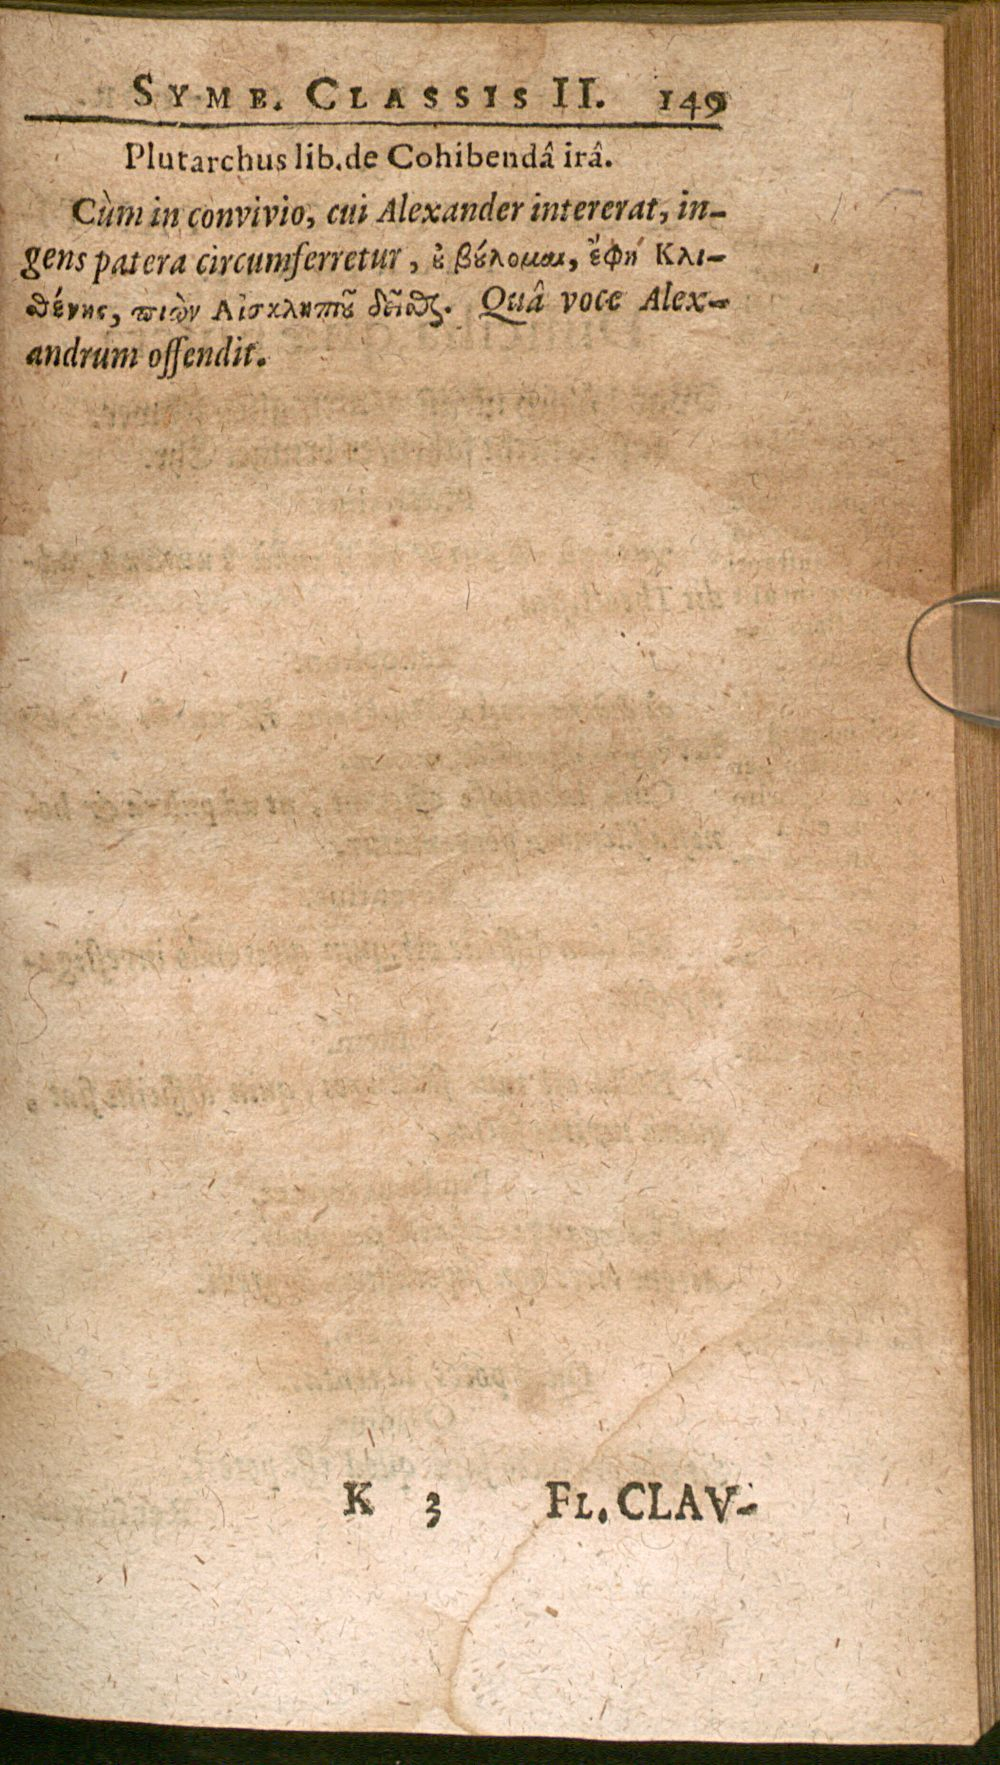 SYMB. CLASSIS II. 149
Plutarchus lib. de Cohibendâ irâ.
Cùm in convivio, cui Alexander intererat, in-
gens patera circumferretur, ȣ βȣ́λομαι, ἔφη Κλι-
θένης, πιὼν Αἰσκληπιȣ͂ δεῖσθζ. Quâ voce Alex-
andrum offendit.
K 3 FL. CLAV-